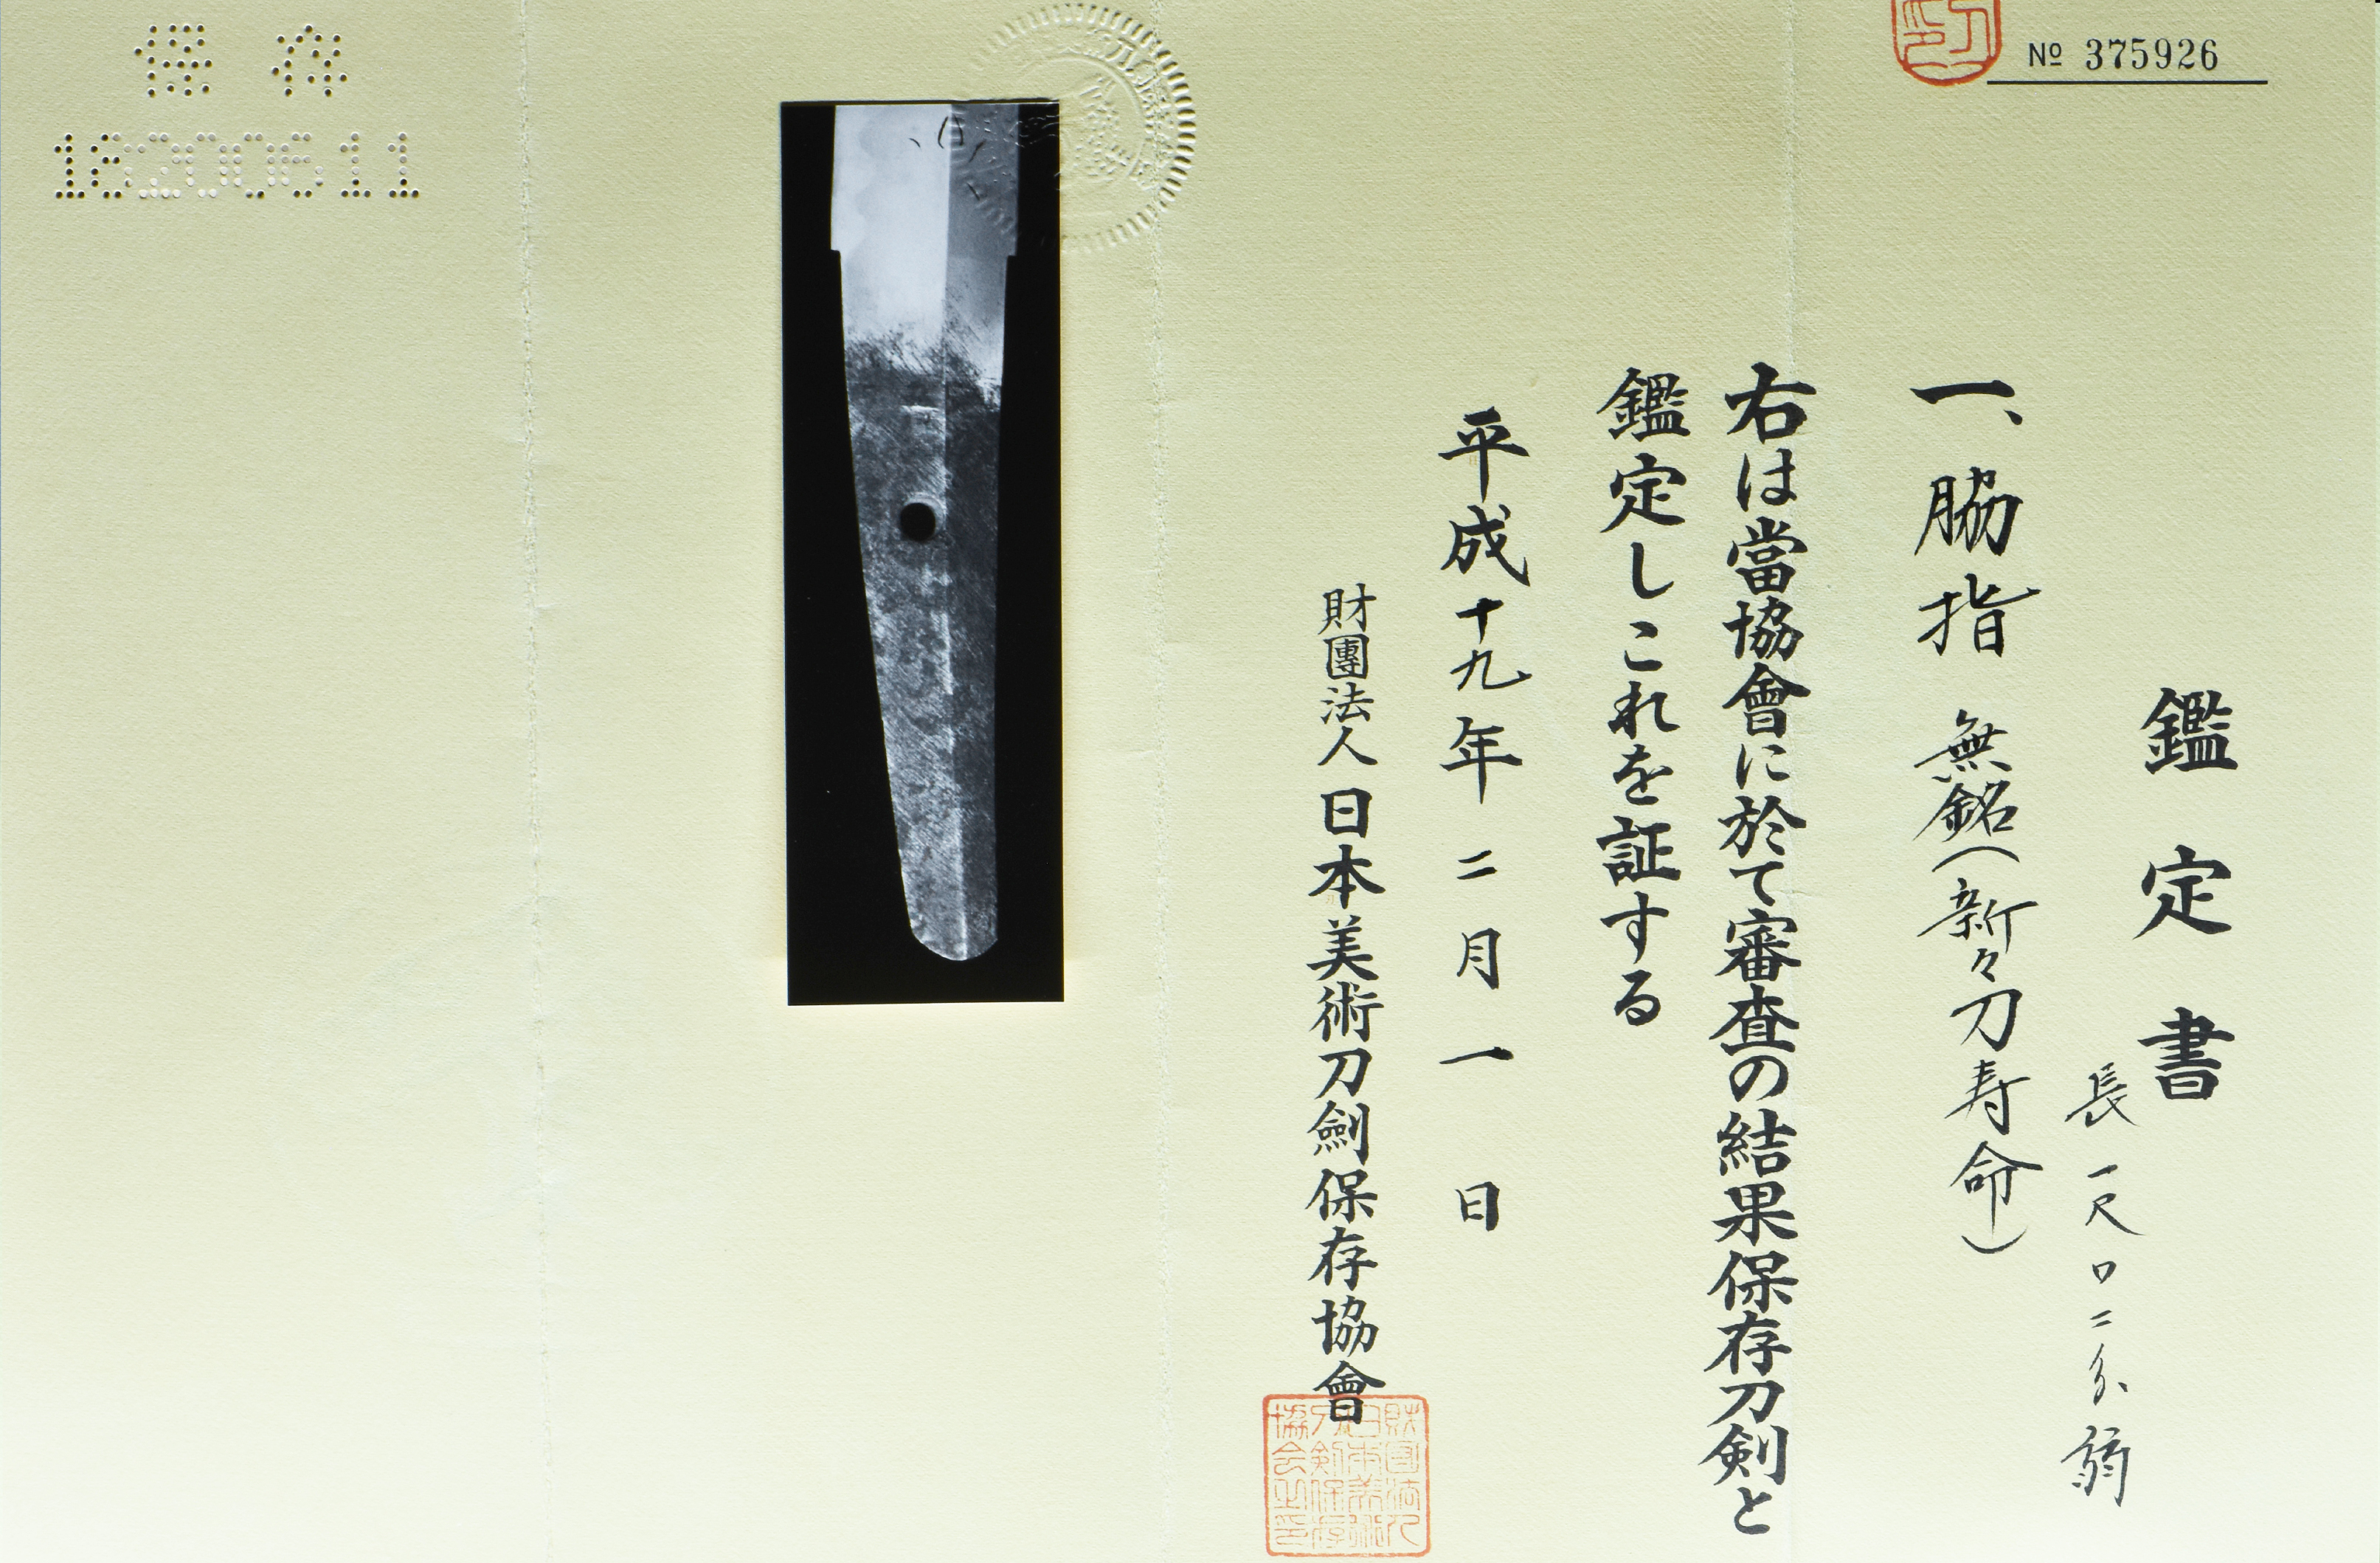 № 375926
鑑定書
長一尺〇二分弱
一、脇指 無銘(新々刀寿命)
右は當協會に於て審査の結果保存刀剣と
鑑定しこれを証する
平成十九年二月一日
財團法人日本美術刀劍保存協會
財團法人
日本美術
刀剣保存
協会之印
保存